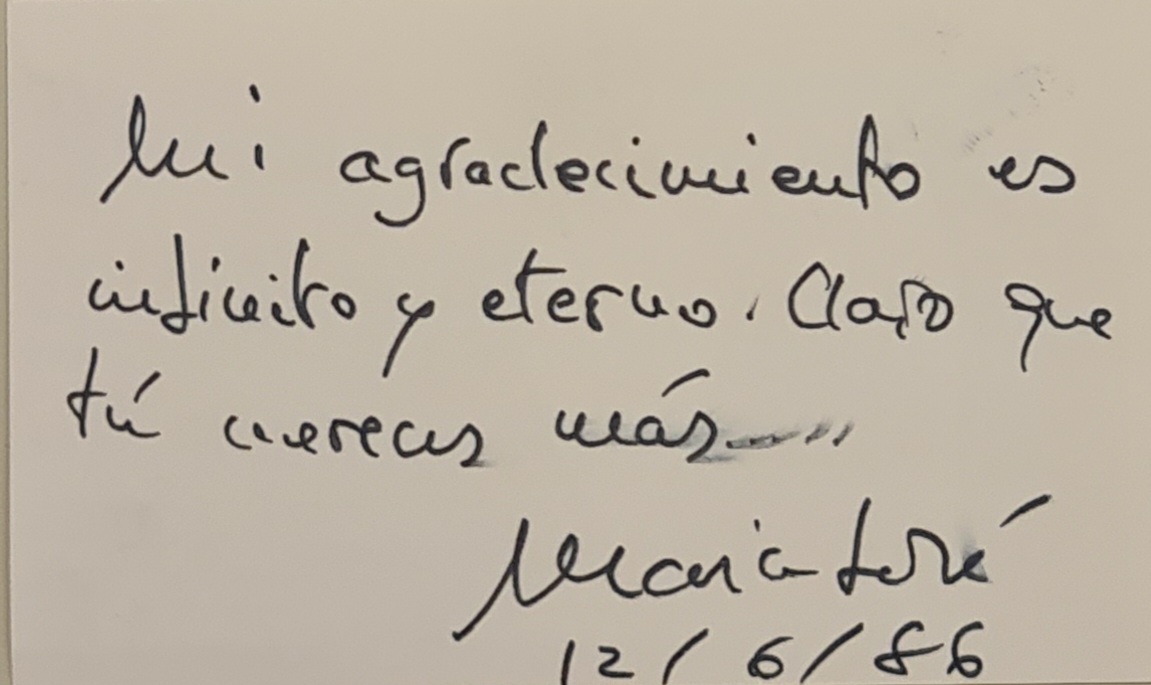 Mi agradecimiento es
infinito y eterno. Claro que
tú mereces más.....
María José
12/6/86